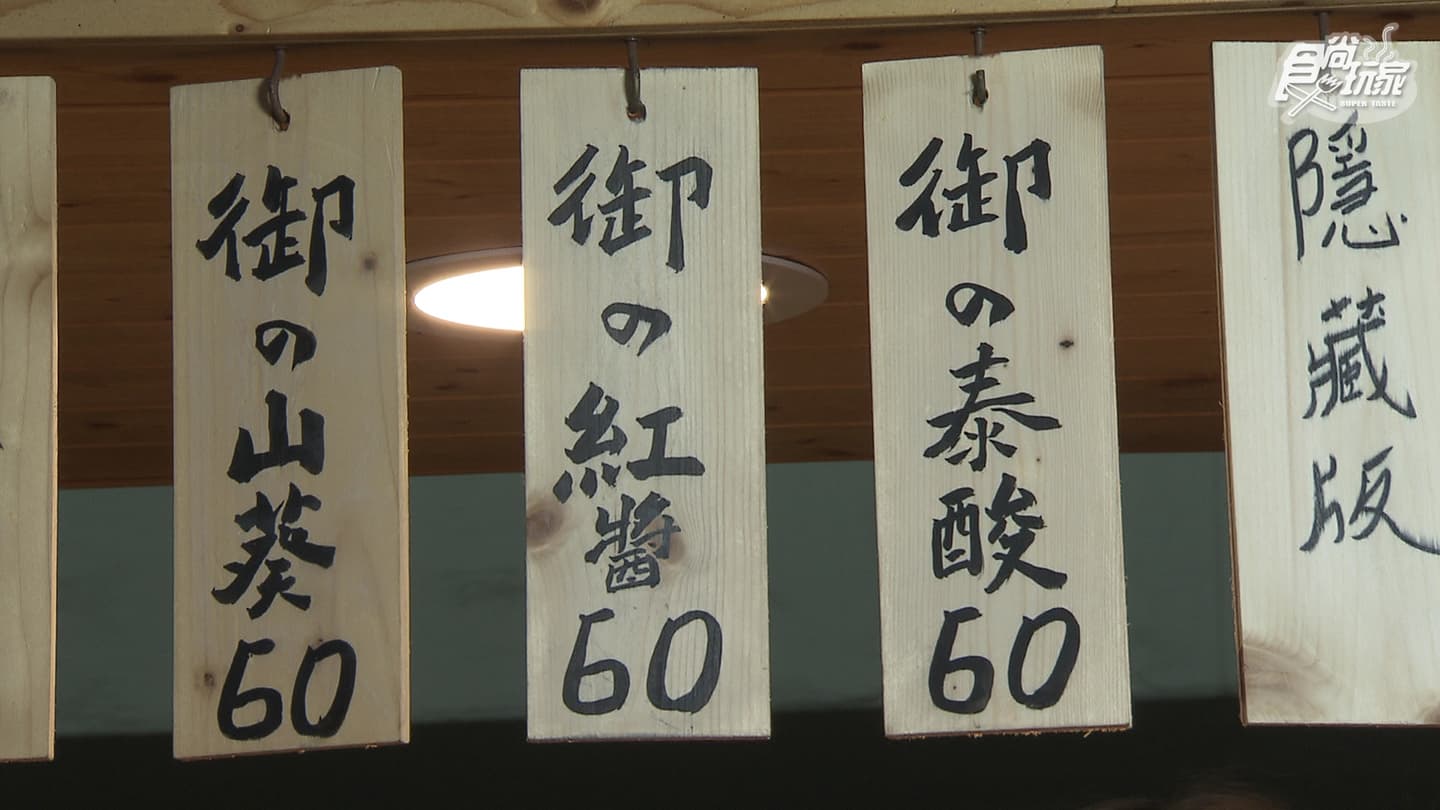 御の山葵60
御の紅醬60
御の泰酸60
隱藏版
食尚玩家
SUPER TASTE